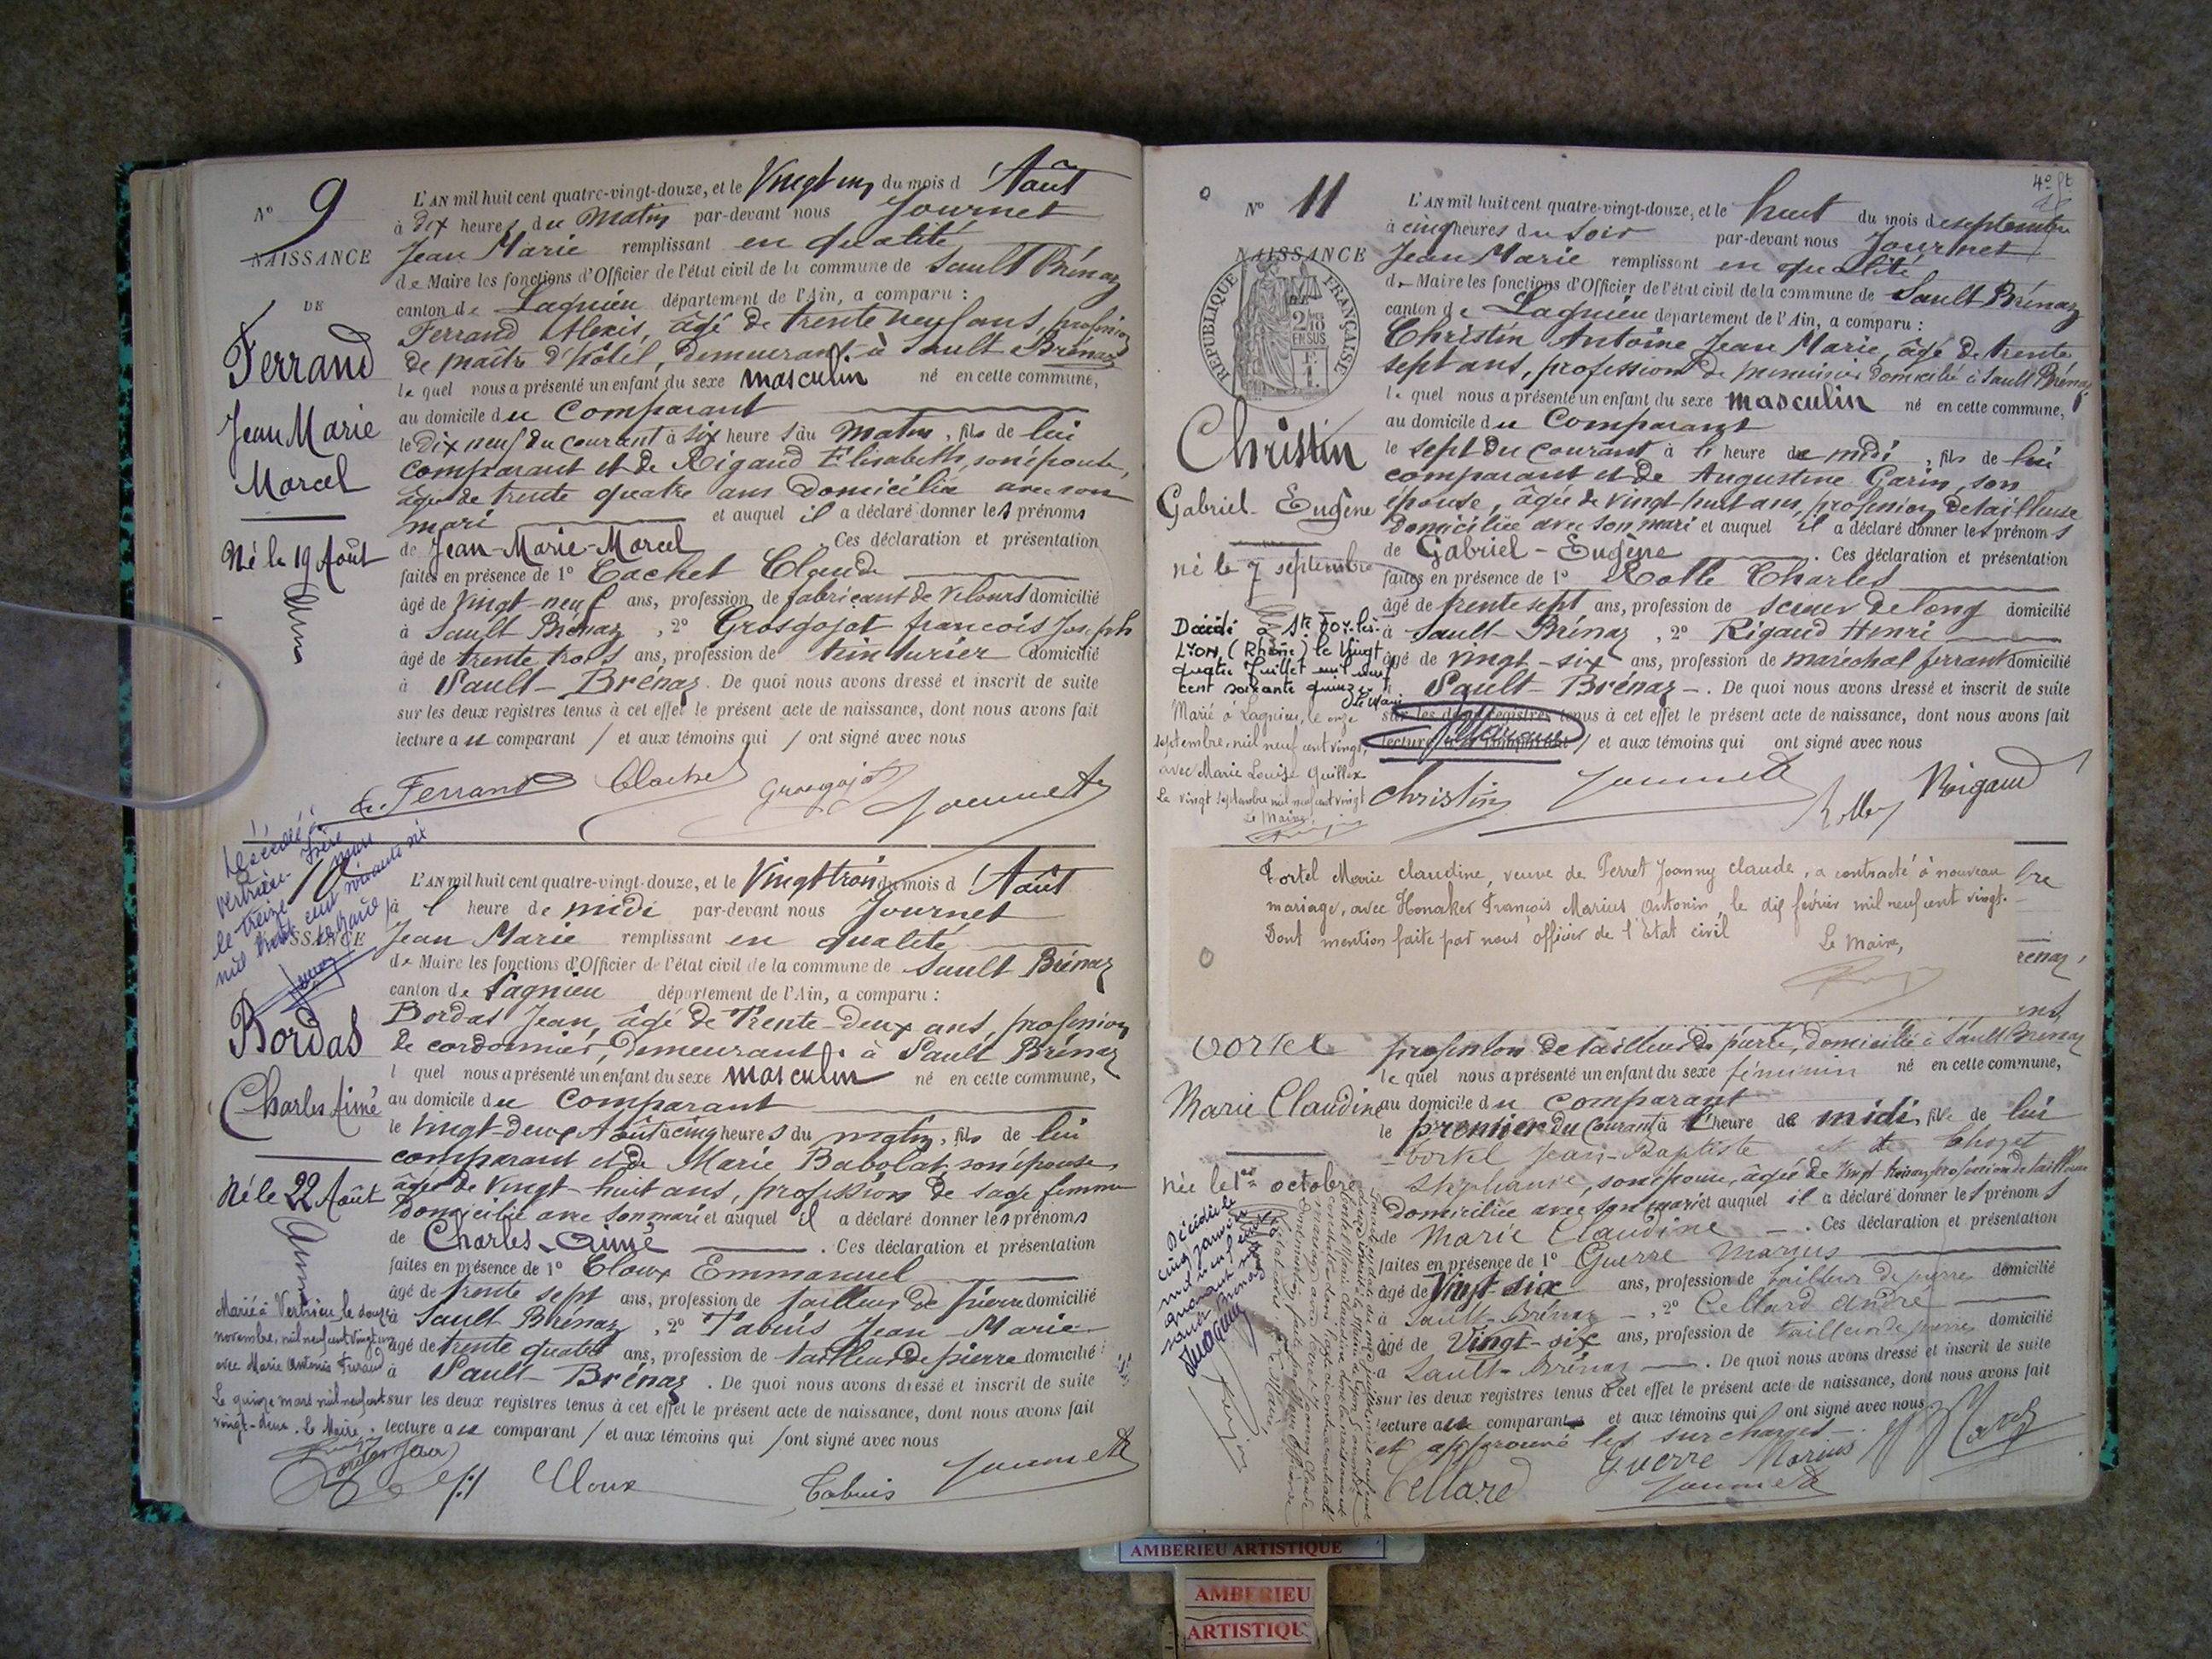 N° 9
NAISSANCE
DE
Ferrand
Jean Marie
Marcel
Né le 19 Août
L'AN mil huit cent quatre-vingt-douze, et le Vingt un du mois d'Août
à dix heures du Matin par-devant nous Journet
Jean Marie remplissant en qualité
de Maire les fonctions d'Officier de l'état civil de la commune de Sault Brénaz
canton de Lagnieu département de l'Ain, a comparu :
Ferrand Alexis, âgé de trente neuf ans, profession
de maître d'hôtel, demeurant à Sault Brénaz
lequel nous a présenté un enfant du sexe masculin né en cette commune,
au domicile du Comparant
le Dix neuf du courant à six heures du Matin, fils de lui
comparant et de Rigaud Elisabeth, son épouse,
âgée de trente quatre ans domiciliée avec son
mari et auquel il a déclaré donner les prénoms
de Jean-Marie-Marcel . Ces déclaration et présentation
faites en présence de 1° Cachet Claude
âgé de vingt-neuf ans, profession de fabricant de velours domicilié
à Sault Brénaz, 2° Grosgojat françois Joseph
âgé de trente trois ans, profession de teinturier domicilié
à Sault-Brénaz. De quoi nous avons dressé et inscrit de suite
sur les deux registres tenus à cet effet le présent acte de naissance, dont nous avons fait
lecture au comparant / et aux témoins qui / ont signé avec nous
Ferrand Grosgojat Journet
10
Bordas
Charles Aimé
Né le 22 Août
Marié à Vertrieu le douze
novembre, mil neuf cent vingt un
avec Marie Antonia
Le quinze mars mil neuf cent
vingt-deux. Le Maire,
L'AN mil huit cent quatre-vingt-douze, et le Vingt trois du mois d'Août
à 1 heure de midi par-devant nous Journet
Jean Marie remplissant en qualité
de Maire les fonctions d'Officier de l'état civil de la commune de Sault Brénaz
canton de Lagnieu département de l'Ain, a comparu :
Bordas Jean, âgé de Trente-Deux ans, profession
de cordonnier, demeurant à Sault Brénaz
lequel nous a présenté un enfant du sexe masculin né en cette commune,
au domicile du comparant
le vingt-deux Août à cinq heures du matin, fils de lui
comparant et de Marie Babolat, son épouse,
âgée de vingt-huit ans, profession de sage femme
Domiciliée avec son mari et auquel il a déclaré donner les prénoms
de Charles-Aimé . Ces déclaration et présentation
faites en présence de 1° Cloux Emmanuel
âgé de trente sept ans, profession de tailleur de pierre domicilié
à Sault Brénaz, 2° Tabuis Jean-Marie
âgé de trente quatre ans, profession de tailleur de pierre domicilié
à Sault-Brénaz. De quoi nous avons dressé et inscrit de suite
sur les deux registres tenus à cet effet le présent acte de naissance, dont nous avons fait
lecture au comparant / et aux témoins qui / ont signé avec nous
Cloux Tabuis Journet
N° 11
NAISSANCE
REPUBLIQUE FRANÇAISE
2/10 EN SUS
Christin
Gabriel-Eugène
né le 7 septembre
Décédé à Ste Foy-lès-
Lyon, (Rhône) le vingt
quatre Juillet mil neuf
cent soixante quinze.
Marié à Lagnieu, le onze
septembre, mil neuf cent vingt,
avec Marie Louise Quillex
Le vingt septembre mil neuf cent vingt
Le Maire
L'AN mil huit cent quatre-vingt-douze, et le huit du mois de septembre
à cinq heures du soir par-devant nous Journet
Jean Marie remplissant en qualité
de Maire les fonctions d'Officier de l'état civil de la commune de Sault Brénaz
canton de Lagnieu département de l'Ain, a comparu :
Christin Antoine Jean Marie, âgé de trente
sept ans, profession de menuisier domicilié à Sault Brénaz
lequel nous a présenté un enfant du sexe masculin né en cette commune,
au domicile du Comparant
le sept du courant, à 1 heure de midi, fils de lui
comparant et de Augustine Garin, son
épouse, âgée de vingt huit ans, profession de tailleuse
domiciliée avec son mari et auquel il a déclaré donner les prénoms
de Gabriel-Eugène . Ces déclaration et présentation
faites en présence de 1° Rolle Charles
âgé de trente sept ans, profession de scieur de long domicilié
à Sault-Brénaz, 2° Rigaud Henri
âgé de vingt-six ans, profession de maréchal ferrant domicilié
Sault-Brénaz. De quoi nous avons dressé et inscrit de suite
sur les deux registres tenus à cet effet le présent acte de naissance, dont nous avons fait
lecture au comparant / et aux témoins qui ont signé avec nous
Christin Journet Rigaud
Tortel Marie Claudine, veuve de Perret Joanny Claude, a contracté à nouveau
mariage, avec Honaker François Marius Antonin, le dix février mil neuf cent vingt.
Dont mention faite par nous officier de l'Etat civil
Le Maire,
Marie Claudine
née le 1er octobre
profession de tailleur de pierre, domicilié à Sault Brénaz
lequel nous a présenté un enfant du sexe féminin né en cette commune,
au domicile du comparant
le premier du courant à 1 heure de midi, fille de lui
Tortel Jean-Baptiste et de
Stéphanie, son épouse, âgée de vingt ans, profession de tailleuse
Domiciliée avec son mari et auquel il a déclaré donner les prénoms
de Marie Claudine . Ces déclaration et présentation
faites en présence de 1° Guerre Marius
âgé de Vingt-six ans, profession de tailleur de pierre domicilié
à Sault-Brénaz, 2° Cellard André
âgé de Vingt-six ans, profession de tailleur de pierre domicilié
à Sault-Brénaz. De quoi nous avons dressé et inscrit de suite
sur les deux registres tenus à cet effet le présent acte de naissance, dont nous avons fait
lecture au comparant et aux témoins qui ont signé avec nous
et approuvé les surcharges
Cellard Guerre Marius Journet
AMBERIEU ARTISTIQUE
AMBERIEU
ARTISTIQU